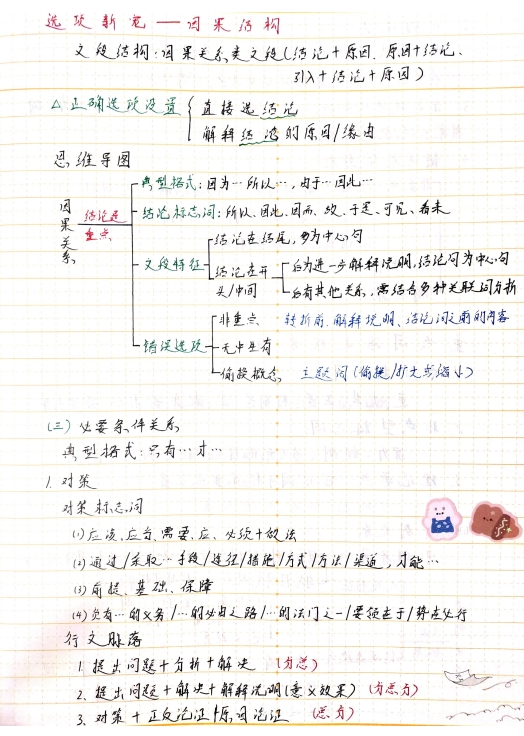 选项新宠——因果结构
文段结构:因果关系类文段(结论+原因、原因+结论、
引入+结论+原因)
△正确选项设置 直接选结论
解释结论的原因/缘由
思维导图
因果关系 结论是重点
典型格式:因为…所以…,由于…因此…
结论标志词:所以、因此、因而、故、于是、可见、看来
文段特征 结论在结尾,多为中心句
结论在开头/中间 后为进一步解释说明,结论句为中心句
后有其他关系,需结合多种关联词分析
错误选项 非重点 转折前、解释说明、结论词之前的内容
无中生有
偷换概念 主题词(偷换/扩大或缩小)
(三)必要条件关系
典型格式:只有…才…
1. 对策
对策标志词
(1)应该、应当、需要、应、必须+做法
(2)通过/采取…手段/途径/措施/方式/方法/渠道,才能…
(3)前提、基础、保障
(4)负有…的义务/…的必由之路/…的法门之一/要领在于/势在必行
行文脉络
1. 提出问题+分析+解决 (分总)
2. 提出问题+解决+解释说明(意义效果) (分总分)
3. 对策+正反论证/原因论证 (总分)